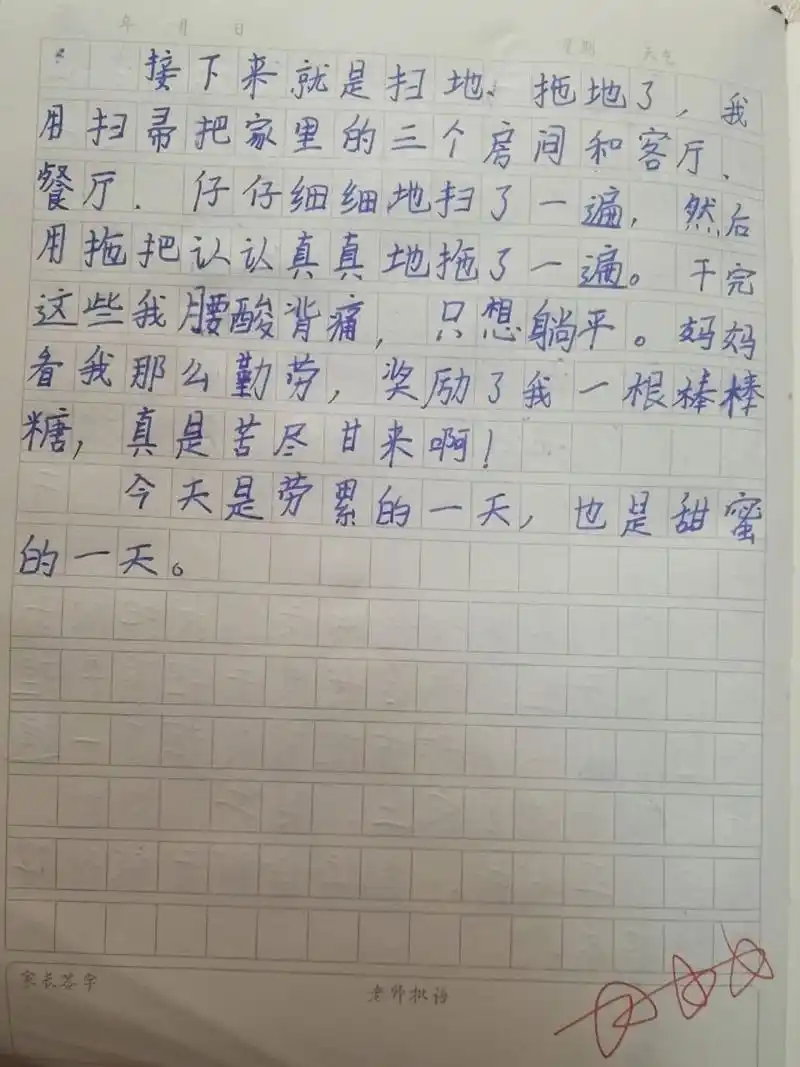 年 月 日
星期 天气
接下来就是扫地、拖地了，我
用扫帚把家里的三个房间和客厅、
餐厅．仔仔细细地扫了一遍，然后
用拖把认认真真地拖了一遍。干完
这些我腰酸背痛，只想躺平。妈妈
看我那么勤劳，奖励了我一根棒棒
糖，真是苦尽甘来啊！
今天是劳累的一天，也是甜蜜
的一天。
家长签字
老师批语